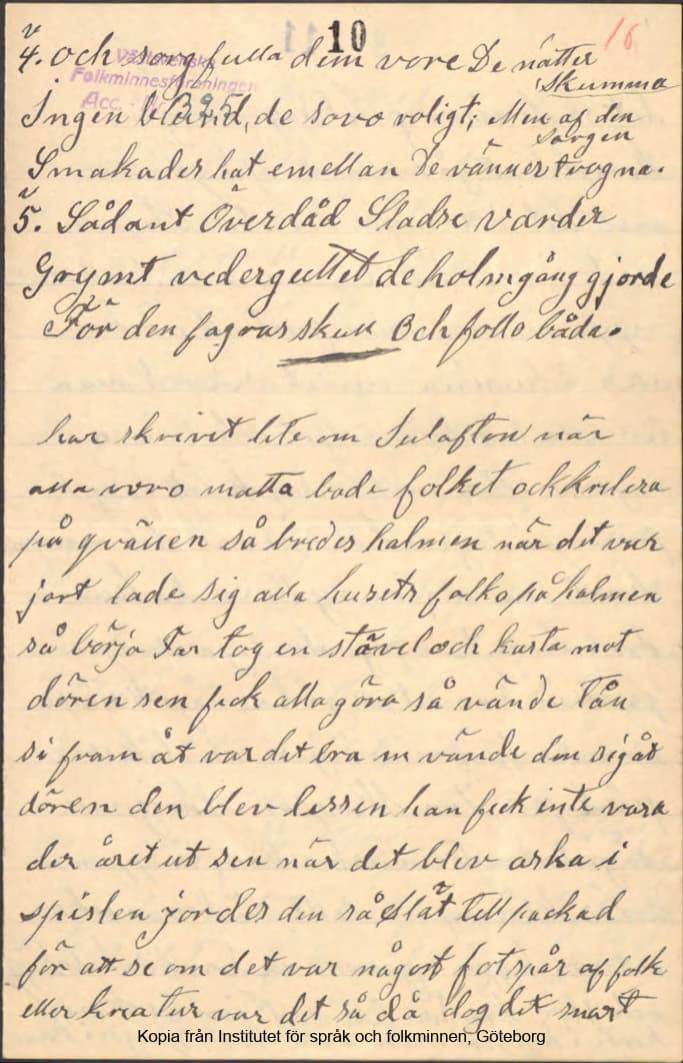 10
16
v
4. Och sorgfulla dem vore De nätter
skumma
Västsvenska
Folkminnesföreningen
Acc. 325
Ingen blund, de sovo roligt; Men af den
sorgen
Smakades hat emellan De vänner trogna.
v
5. Sådant Överdåd Sladse varder
Grymt vedergultet de holmgång gjorde
För den fagras skull Och follo båda.
har skrivit lite om Julafton när
alla voro matta bade folket och krelera
på qvällen så bredes halmen när det var
jort lade sig alla husets folko på halmen
så börja Far tog en stövel och kasta mot
dören sen fick alla göra så vände Tån
si fram åt var det bra m vände den sig åt
dören den blev lessen han fick inte vara
der året ut sen när det blev aska i
spislen jordes den så slät till packad
för att se om det var någort fotspår af folk
eller kreatur var det så då dog det snart
Kopia från Institutet för språk och folkminnen, Göteborg